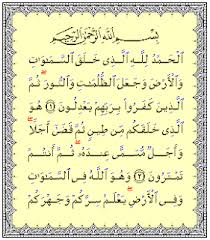 بِسْمِ ٱللَّهِ ٱلرَّحْمَٰنِ ٱلرَّحِيمِ
ٱلْحَمْدُ لِلَّهِ ٱلَّذِى خَلَقَ ٱلسَّمَٰوَٰتِ
وَٱلْأَرْضَ وَجَعَلَ ٱلظُّلُمَٰتِ وَٱلنُّورَ ثُمَّ
ٱلَّذِينَ كَفَرُوا۟ بِرَبِّهِمْ يَعْدِلُونَ ١ هُوَ
ٱلَّذِى خَلَقَكُم مِّن طِينٍ ثُمَّ قَضَىٰٓ أَجَلًا ۖ
وَأَجَلٌ مُّسَمًّى عِندَهُۥ ۖ ثُمَّ أَنتُمْ
تَمْتَرُونَ ٢ وَهُوَ ٱللَّهُ فِى ٱلسَّمَٰوَٰتِ
وَفِى ٱلْأَرْضِ ۖ يَعْلَمُ سِرَّكُمْ وَجَهْرَكُمْ